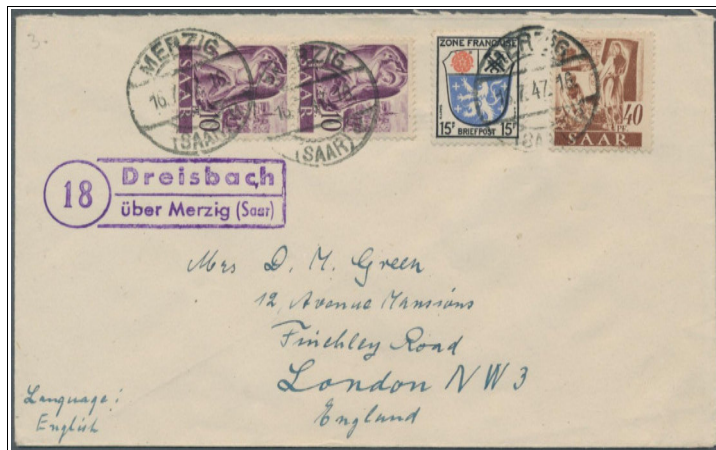 3.
MERZIG
16.7.
(SAAR)
SAAR
10
SAAR
10
ZONE FRANÇAISE
15F BRIEFPOST 15F
MERZIG
7.47.18
40
PF.
SAAR
18
Dreisbach
über Merzig (Saar)
Mrs D. M. Green
12, Avenue Mansions
Finchley Road
London NW3
England
Language:
English